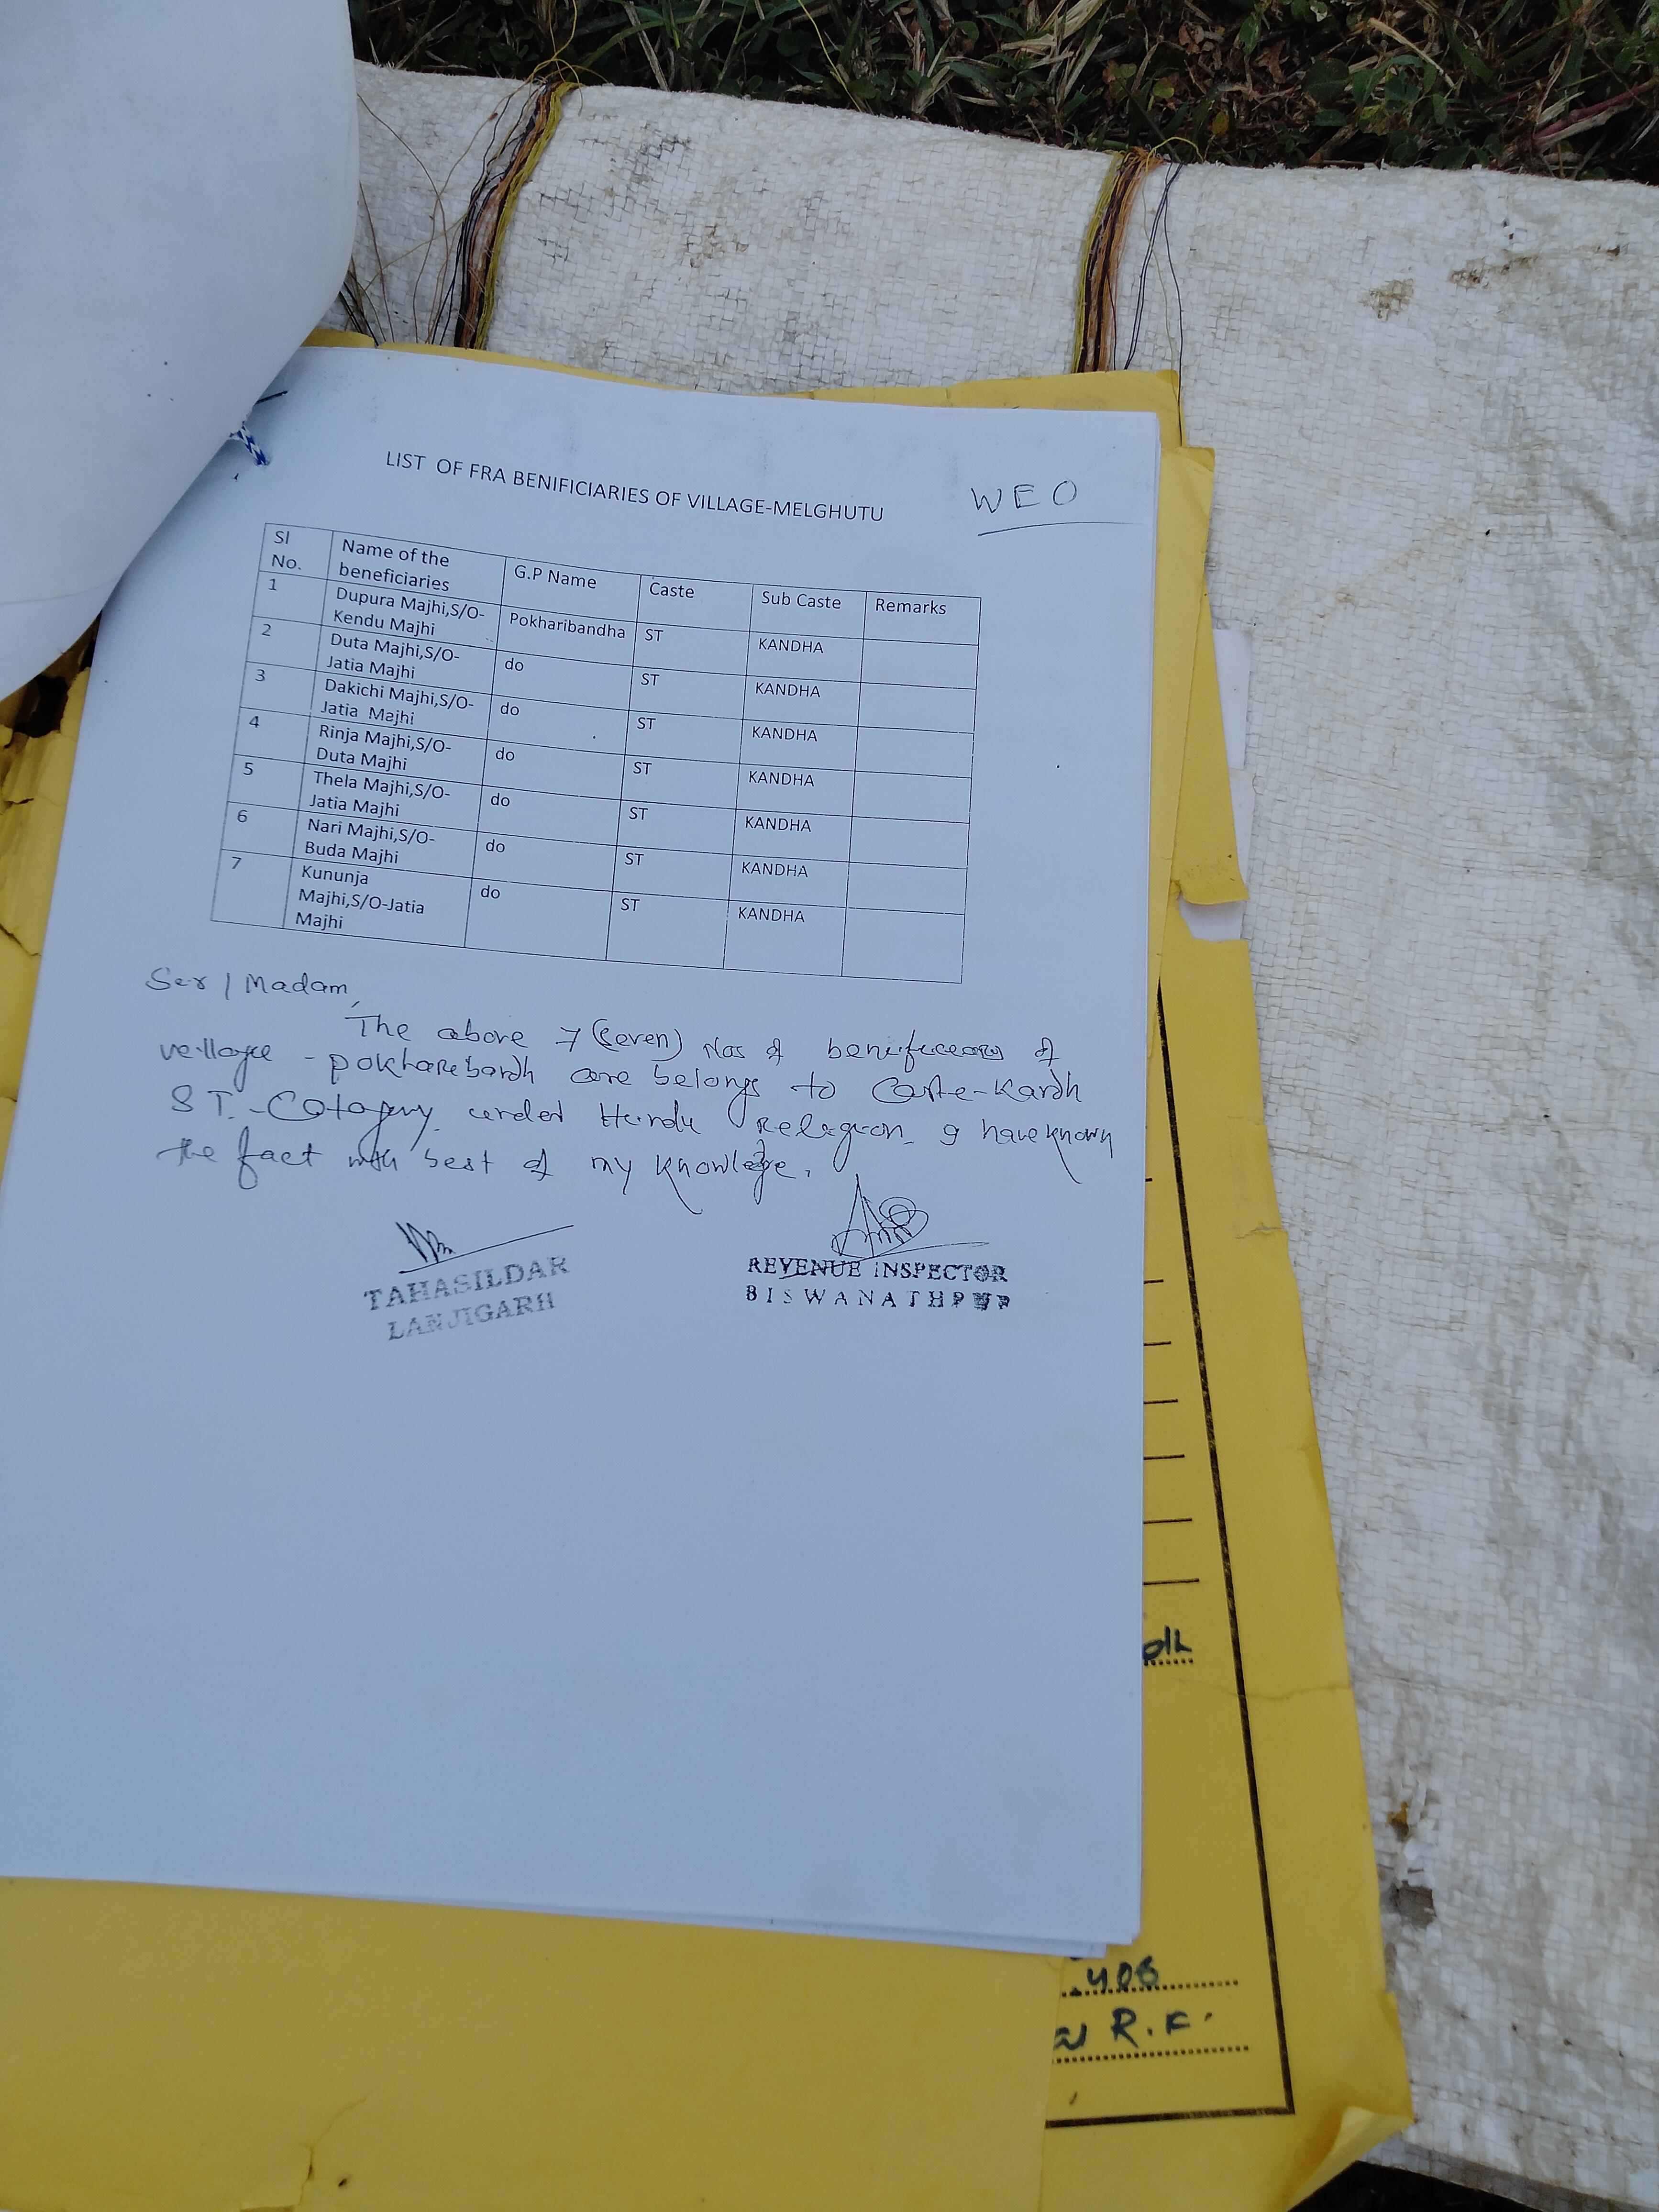 LIST OF FRA BENIFICIARIES OF VILLAGE-MELGHUTU
WEO
Sl No. Name of the beneficiaries G.P Name Caste Sub Caste Remarks
1 Dupura Majhi,S/O-Kendu Majhi Pokharibandha ST KANDHA
2 Duta Majhi,S/O-Jatia Majhi do ST KANDHA
3 Dakichi Majhi,S/O-Jatia Majhi do ST KANDHA
4 Rinja Majhi,S/O-Duta Majhi do ST KANDHA
5 Thela Majhi,S/O-Jatia Majhi do ST KANDHA
6 Nari Majhi,S/O-Buda Majhi do ST KANDHA
7 Kununja Majhi,S/O-Jatia Majhi do ST KANDHA
Ser / Madam,
The above 7 (Seven) Nos of
village - are belongs to Caste-Kandh
S T. - under Hindu Religion. I have known
the fact with best of my knowledge.
TAHASILDAR
LANJIGARH
REVENUE INSPECTOR
BISWANATHPUR
408
R.F.